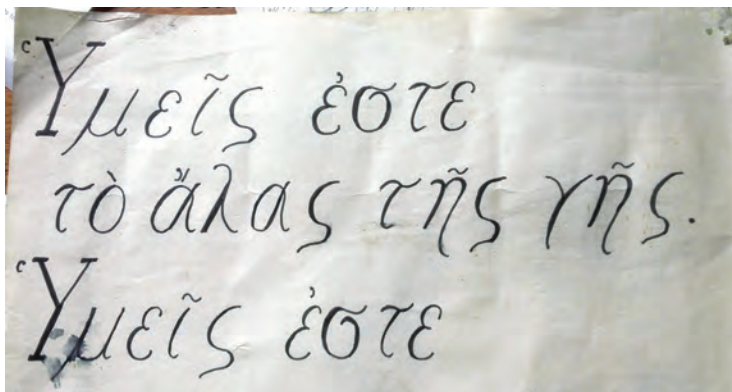 Ὑμεῖς ἐστε
τὸ ἅλας τῆς γῆς.
Ὑμεῖς ἐστε